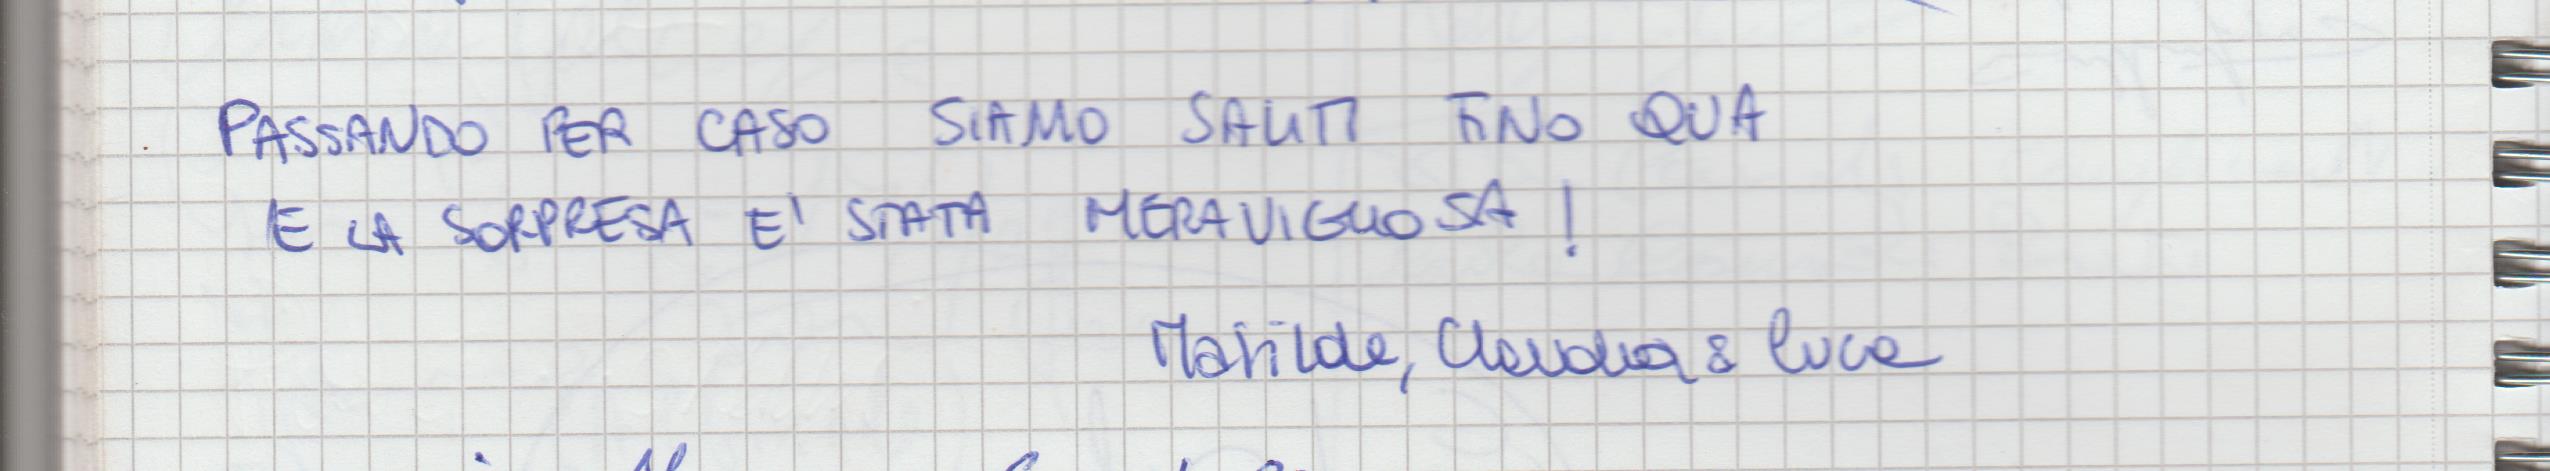 PASSANDO PER CASO SIAMO SALITI FINO QUA
E LA SORPRESA E' STATA MERAVIGLIOSA!
Matilde, Claudia & Luca